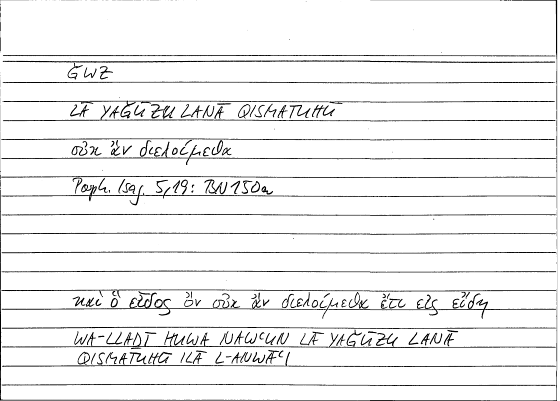 ǦWZ
LĀ YAǦŪZU LANĀ QISMATUHŪ
οὐκ ἂν διελοίμεθα
Porph. Isag. 5,19: BN 150a
καὶ ὃ εἶδος ὂν οὐκ ἂν διελοίμεθα ἔτι εἰς εἴδη
WA-LLAḎĪ HUWA NAWʿUN LĀ YAǦŪZU LANĀ
QISMATUHŪ ILĀ L-ANWĀʿI